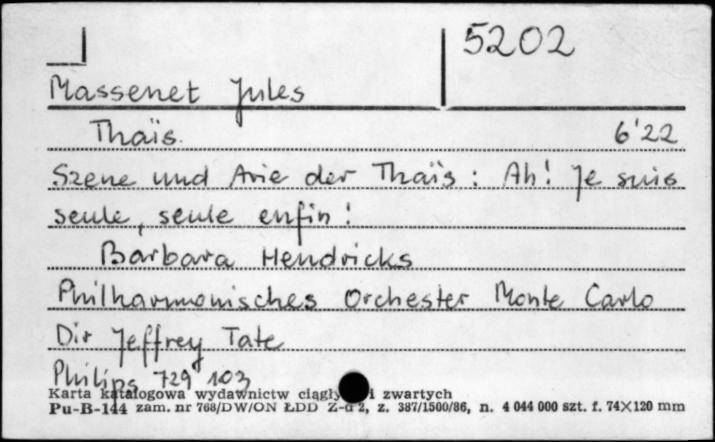 5202
Massenet Jules
Thaïs. 6'22
Szene und Arie der Thaïs: Ah! Je suis
seule, seule enfin!
Barbara Hendricks
Philharmonisches Orchester Monte Carlo
Dir Jeffrey Tate
Philips 729 103
Karta katalogowa wydawnictw ciągły i zwartych
Pu-B-144 zam. nr 768/DW/ON ŁDD Z-d 2, z. 387/1500/86, n. 4 044 000 szt. f. 74×120 mm